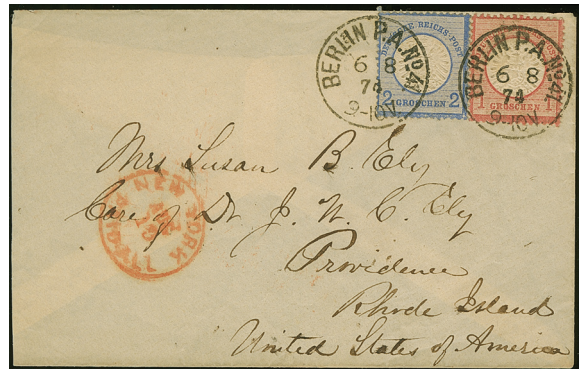 BERLIN P.A. No 41
6 8
74
9-10V.
DEUTSCHE REICHS-POST
2 GROSCHEN 2
BERLIN P.A. No 41
6 8
74
9-10V.
1 GROSCHEN 1
Mrs Susan B. Ely
Care of Dr J. W. C. Ely
Providence
Rhode Island
United States of America
NEW YORK